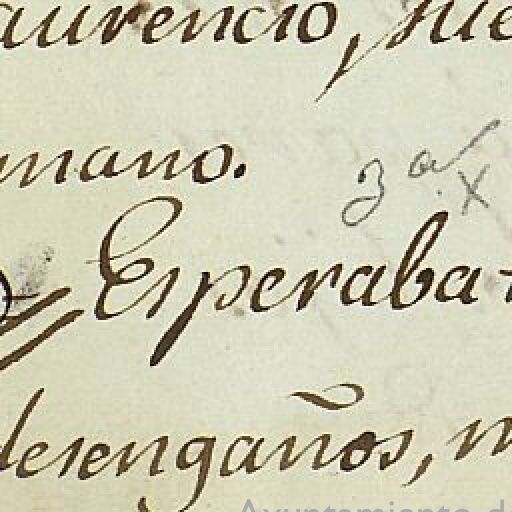 aurencio, sue
mano.
3ª x
Esperaba
desengaños, m
Ayuntamiento d